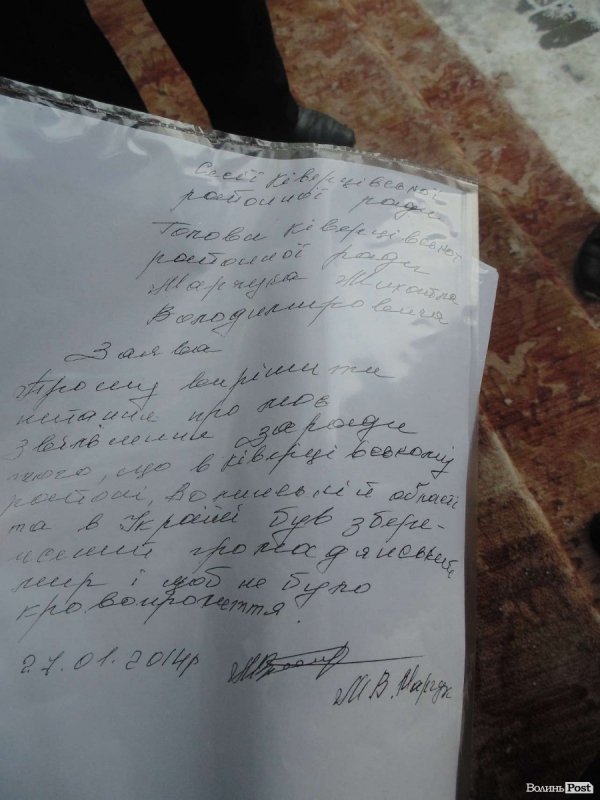 Сесії Ківерцівської
районної ради
Голови Ківерцівської
районної ради
Марчука Михайла
Володимировича
Заява
Прошу вирішити
питання про моє
звільнення заради
того, що в Ківерцівському
районі, Волинській області
та в Україні був збере-
жений громадянський
мир і щоб не було
кровопролиття.
27.01.2014р
М.В. Марчук
ВолиньPost